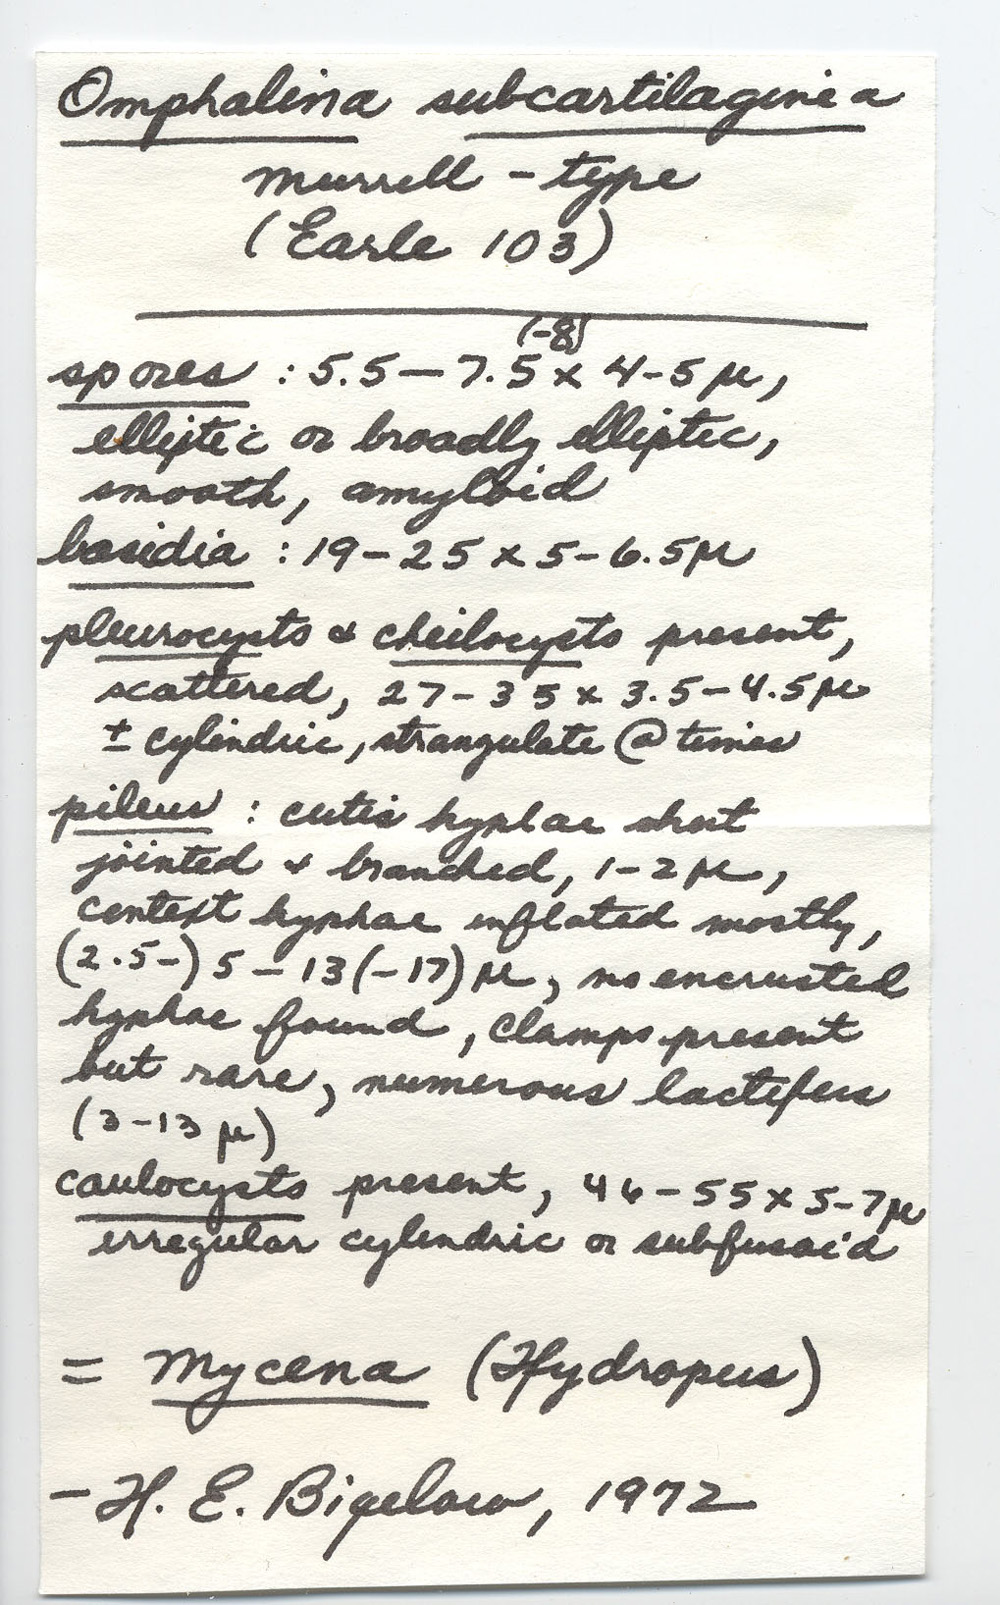 Omphalina subcartilaginea
Murrill - type
(Earle 103)
(-8)
spores : 5.5 – 7.5 x 4-5 µ,
elliptic or broadly elliptic,
smooth, amyloid
basidia : 19 – 25 x 5 – 6.5µ
pleurocysts & cheilocysts present,
scattered, 27 – 35 x 3.5 – 4.5µ
± cylindric, strangulate @ times
pileus : cutis hyphae short
jointed & branched, 1 – 2 µ,
context hyphae inflated mostly,
(2.5-) 5 – 13 (-17) µ, no encrusted
hyphae found, clamps present
but rare, numerous lactifers
(3-13 µ)
caulocysts present, 46 – 55 x 5-7µ
irregular cylindric or subfusoid
= Mycena (Hydropus)
– H. E. Bigelow, 1972